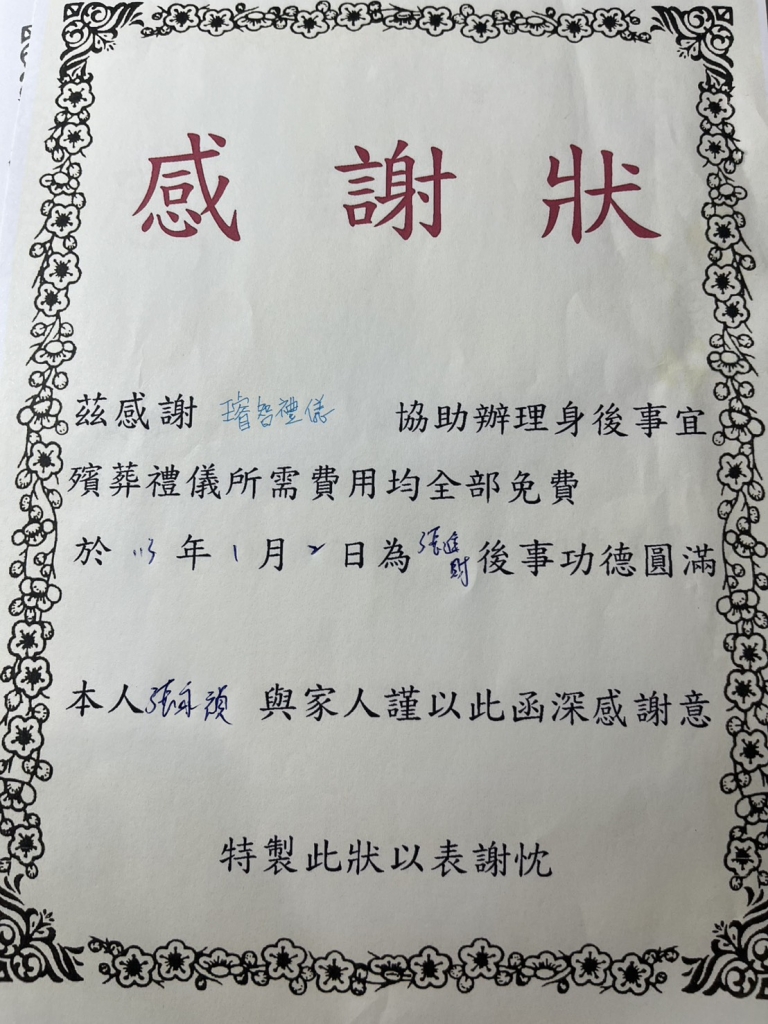 感謝狀
茲感謝 璿智禮儀 協助辦理身後事宜
殯葬禮儀所需費用均全部免費
於 113 年 1 月 2 日為 張進財 後事功德圓滿
本人 張永禎 與家人謹以此函深感謝意
特製此狀以表謝忱